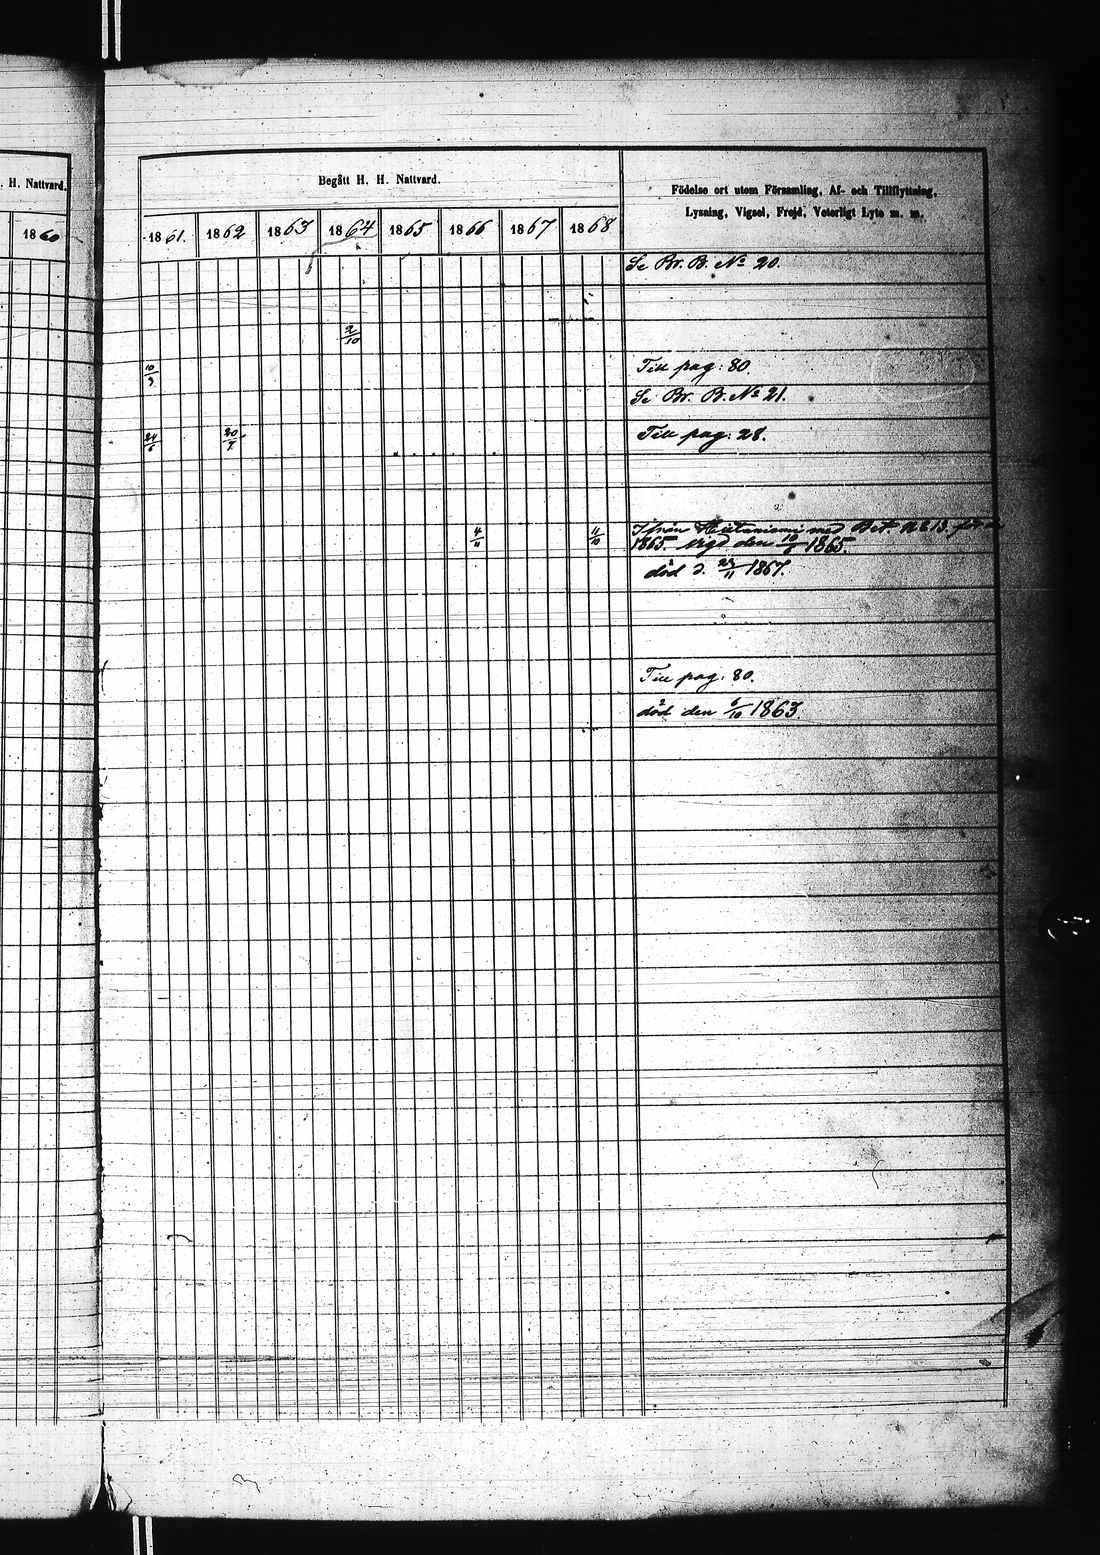 . H. Nattvard.
Begått H. H. Nattvard.
Födelse ort utom Församling, Af- och Tillflyttning,
Lysning, Vigsel, Frejd, Veterligt Lyte m. m.
1860
1861. 1862 1863 1864 1865 1866 1867 1868
Se Br. B. No 20.
2/10
10/3 Till pag: 80.
Se Br. B. No 21.
24/6 20/7 Till pag: 28.
4/11 11/10 Ifrån med Bet. No 13. för
1865. Vigd den 10/6 1865.
död d. 1867.
Till pag: 80.
död den 5/10 1863.